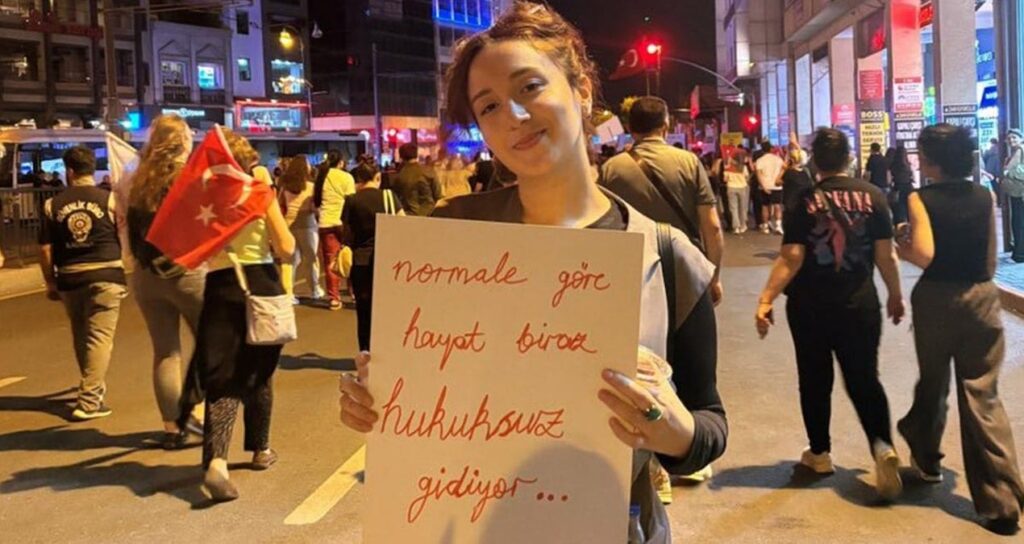 normale göre
hayat biraz
hukuksuz
gidiyor...
BOSS